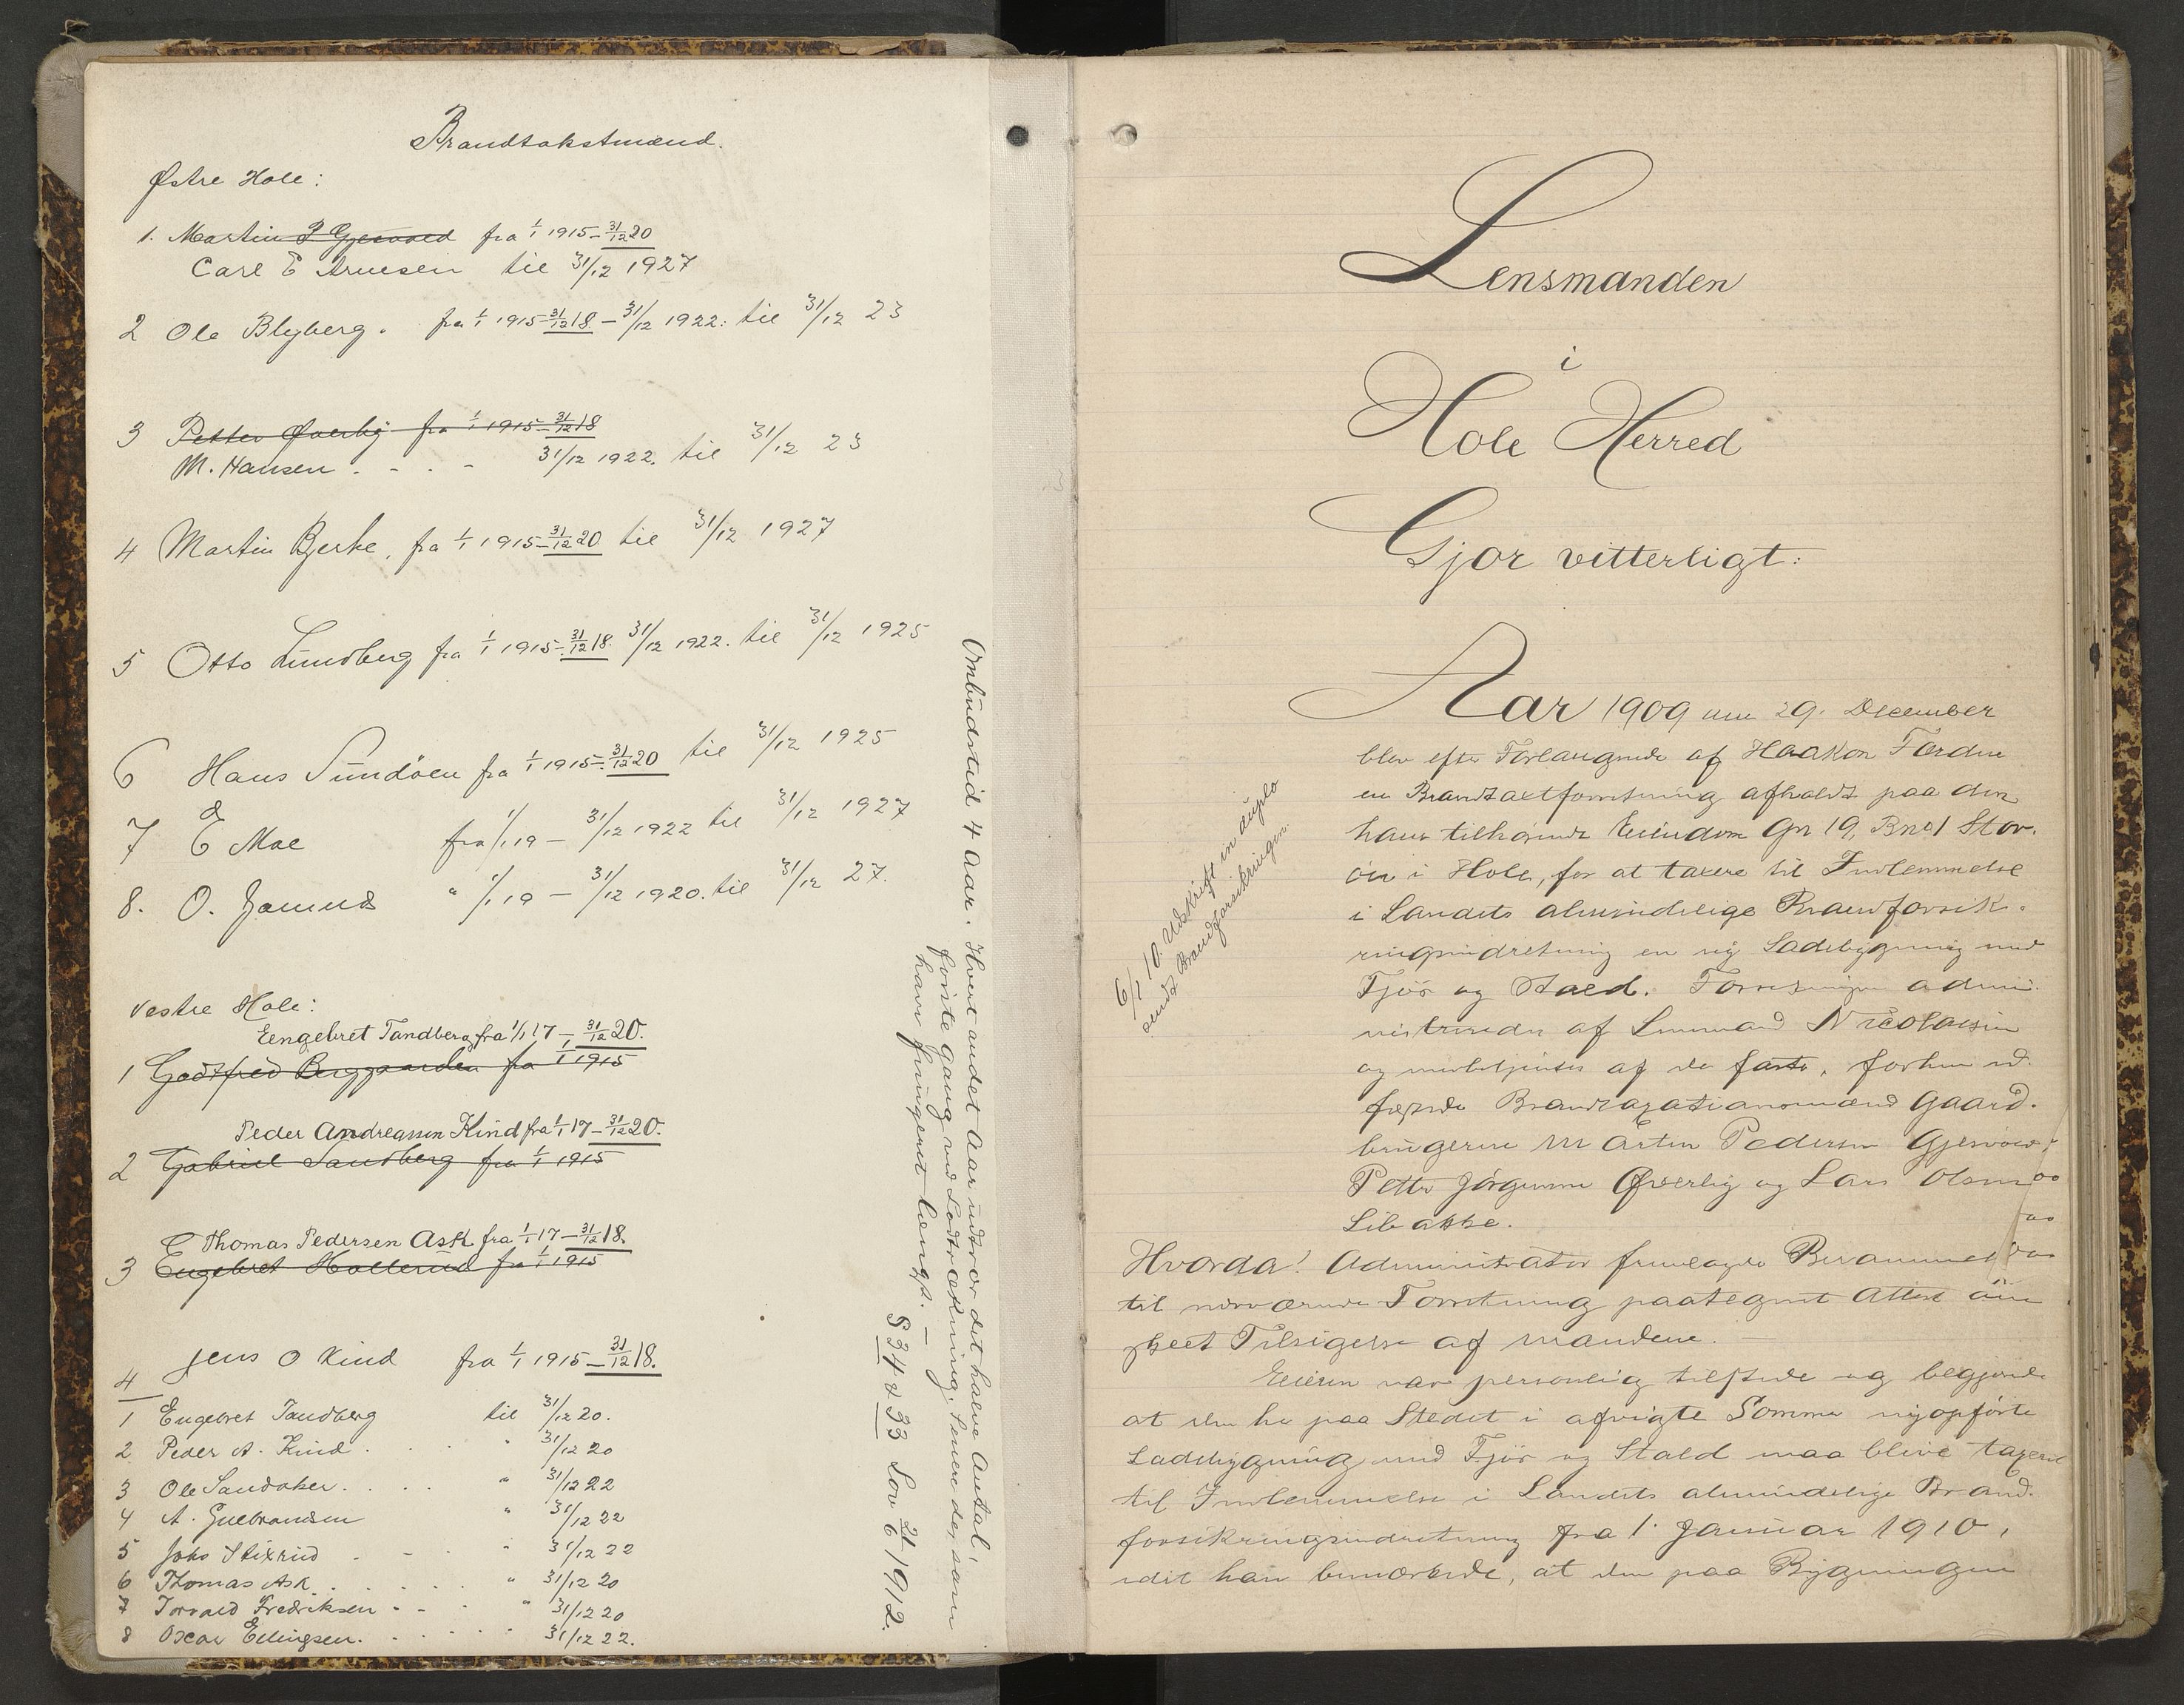 Brandtakstmænd.
Østre Hole:
1. Martin P Gjesvold fra 1/1 1915 - 31/12 20
Carl E Arnesen til 31/12 1927
2 Ole Blyberg. fra 1/1 1915 - 31/12 18 - 31/12 1922: til 31/12 23
3 Petter Øverby fra 1/1 1915 - 31/12 18
M. Hansen . - . - 31/12 1922. til 31/12 23
4 Martin Bjerke, fra 1/1 1915 - 31/12 20 til 31/12 1927
5 Otto Lundberg fra 1/1 1915 - 31/12 18. 31/12 1922. til 31/12 1925
6 Hans Sundöen fra 1/1 1915 - 31/12 20 til 31/12 1925
7 E Moe fra 1/1 19 - 31/12 1922 til 31/12 1927
8. O. Gomnæs " 1/1 19 - 31/12 1920. til 31/12 27.
Vestre Hole:
Eengebret Tandberg fra 1/1 17 - 31/12 20.
1 Godtfred Berggaarden fra 1/1 1915
Peder Andreassen Kind fra 1/1 17 - 31/12 20.
2 Gabriel Sandberg fra 1/1 1915
Thomas Pedersen Ask fra 1/1 17 - 31/12 18.
3 Engebret Hollerud fra 1/1 1915
4 Jens O Kind fra 1/1 1915 - 31/12 18.
1 Engebret Tandberg til 31/12 20.
2 Peder A. Kind . . . " 31/12 20
3 Ole Sandaker. . . . " 31/12 22
4 A. Gulbrandsen " 31/12 22
5 Johs Stixrud . - . " 31/12 22
6 Thomas Ask. . . . . " 31/12 20
7 Torvald Fredriksen - - . " 31/12 20
8 Oscar Ellingsen. . . . . 31/12 22.
Ombudstid 4 Aar. Hvert andet Aar udtrær det halve Antal,
første Gang ved Lodtrækning. Senere de, som
have fungeret længst. -
§ 34 & 33 Lov 21/6 1912.
Lensmanden
i
Hole Herred
Gjør vitterligt:
Aar 1909 den 29. December
blev efter Forlangende af Haakon Færden
en Brandtaxtforretning afholdt paa den
ham tilhørende Eiendom Gn 19, Bno 1 Stor-
øen i Hole, for at taxere til Indlemmelse
i Landets almindelige Brandforsik-
ringsindretning en ny Ladebygning med
Fjøs og Stald. Forretningen admi-
nistreredes af Lensmand Nicolaisen
og medbetjentes af de faste, forhen ed-
fæstede Brandtaxationsmænd Gaard-
brugerne Martin Pedersen Gjesvold,
Petter Jørgensen Øverby og Lars Olsen
Libakke.
Hvorda! Administrator fremlagde Berammelse
til nærværende Forretning paategnet Attest om
skeet Tilsigelse af Mændene.
Eieren var personlig tilstede og begjærede
at den her paa Stedet i afvigte Sommer nyopførte
Ladebygning med Fjøs og Stald maa blive taxeret
til Indlemmelse i Landets almindelige Brand-
forsikringsindretning fra 1. Januar 1910,
idet han bemærkede, at den paa Bygningen
6/1 10. Udskrift in duplo
sendt Brandforsikringen.